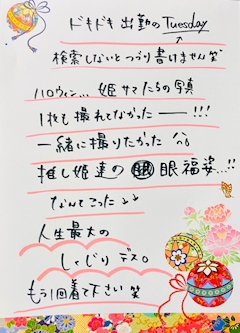 ドキドキ出勤のTuesday
検索しないとつづり書けません笑
ハロウィン… 姫サマたちの写真
1枚も撮れてなかったー!!!
一緒に撮りたかった
推し姫達の 眼福姿…!!
なんてこった↓↓
人生最大の
しくじりデス。
もう1回着て下さい笑